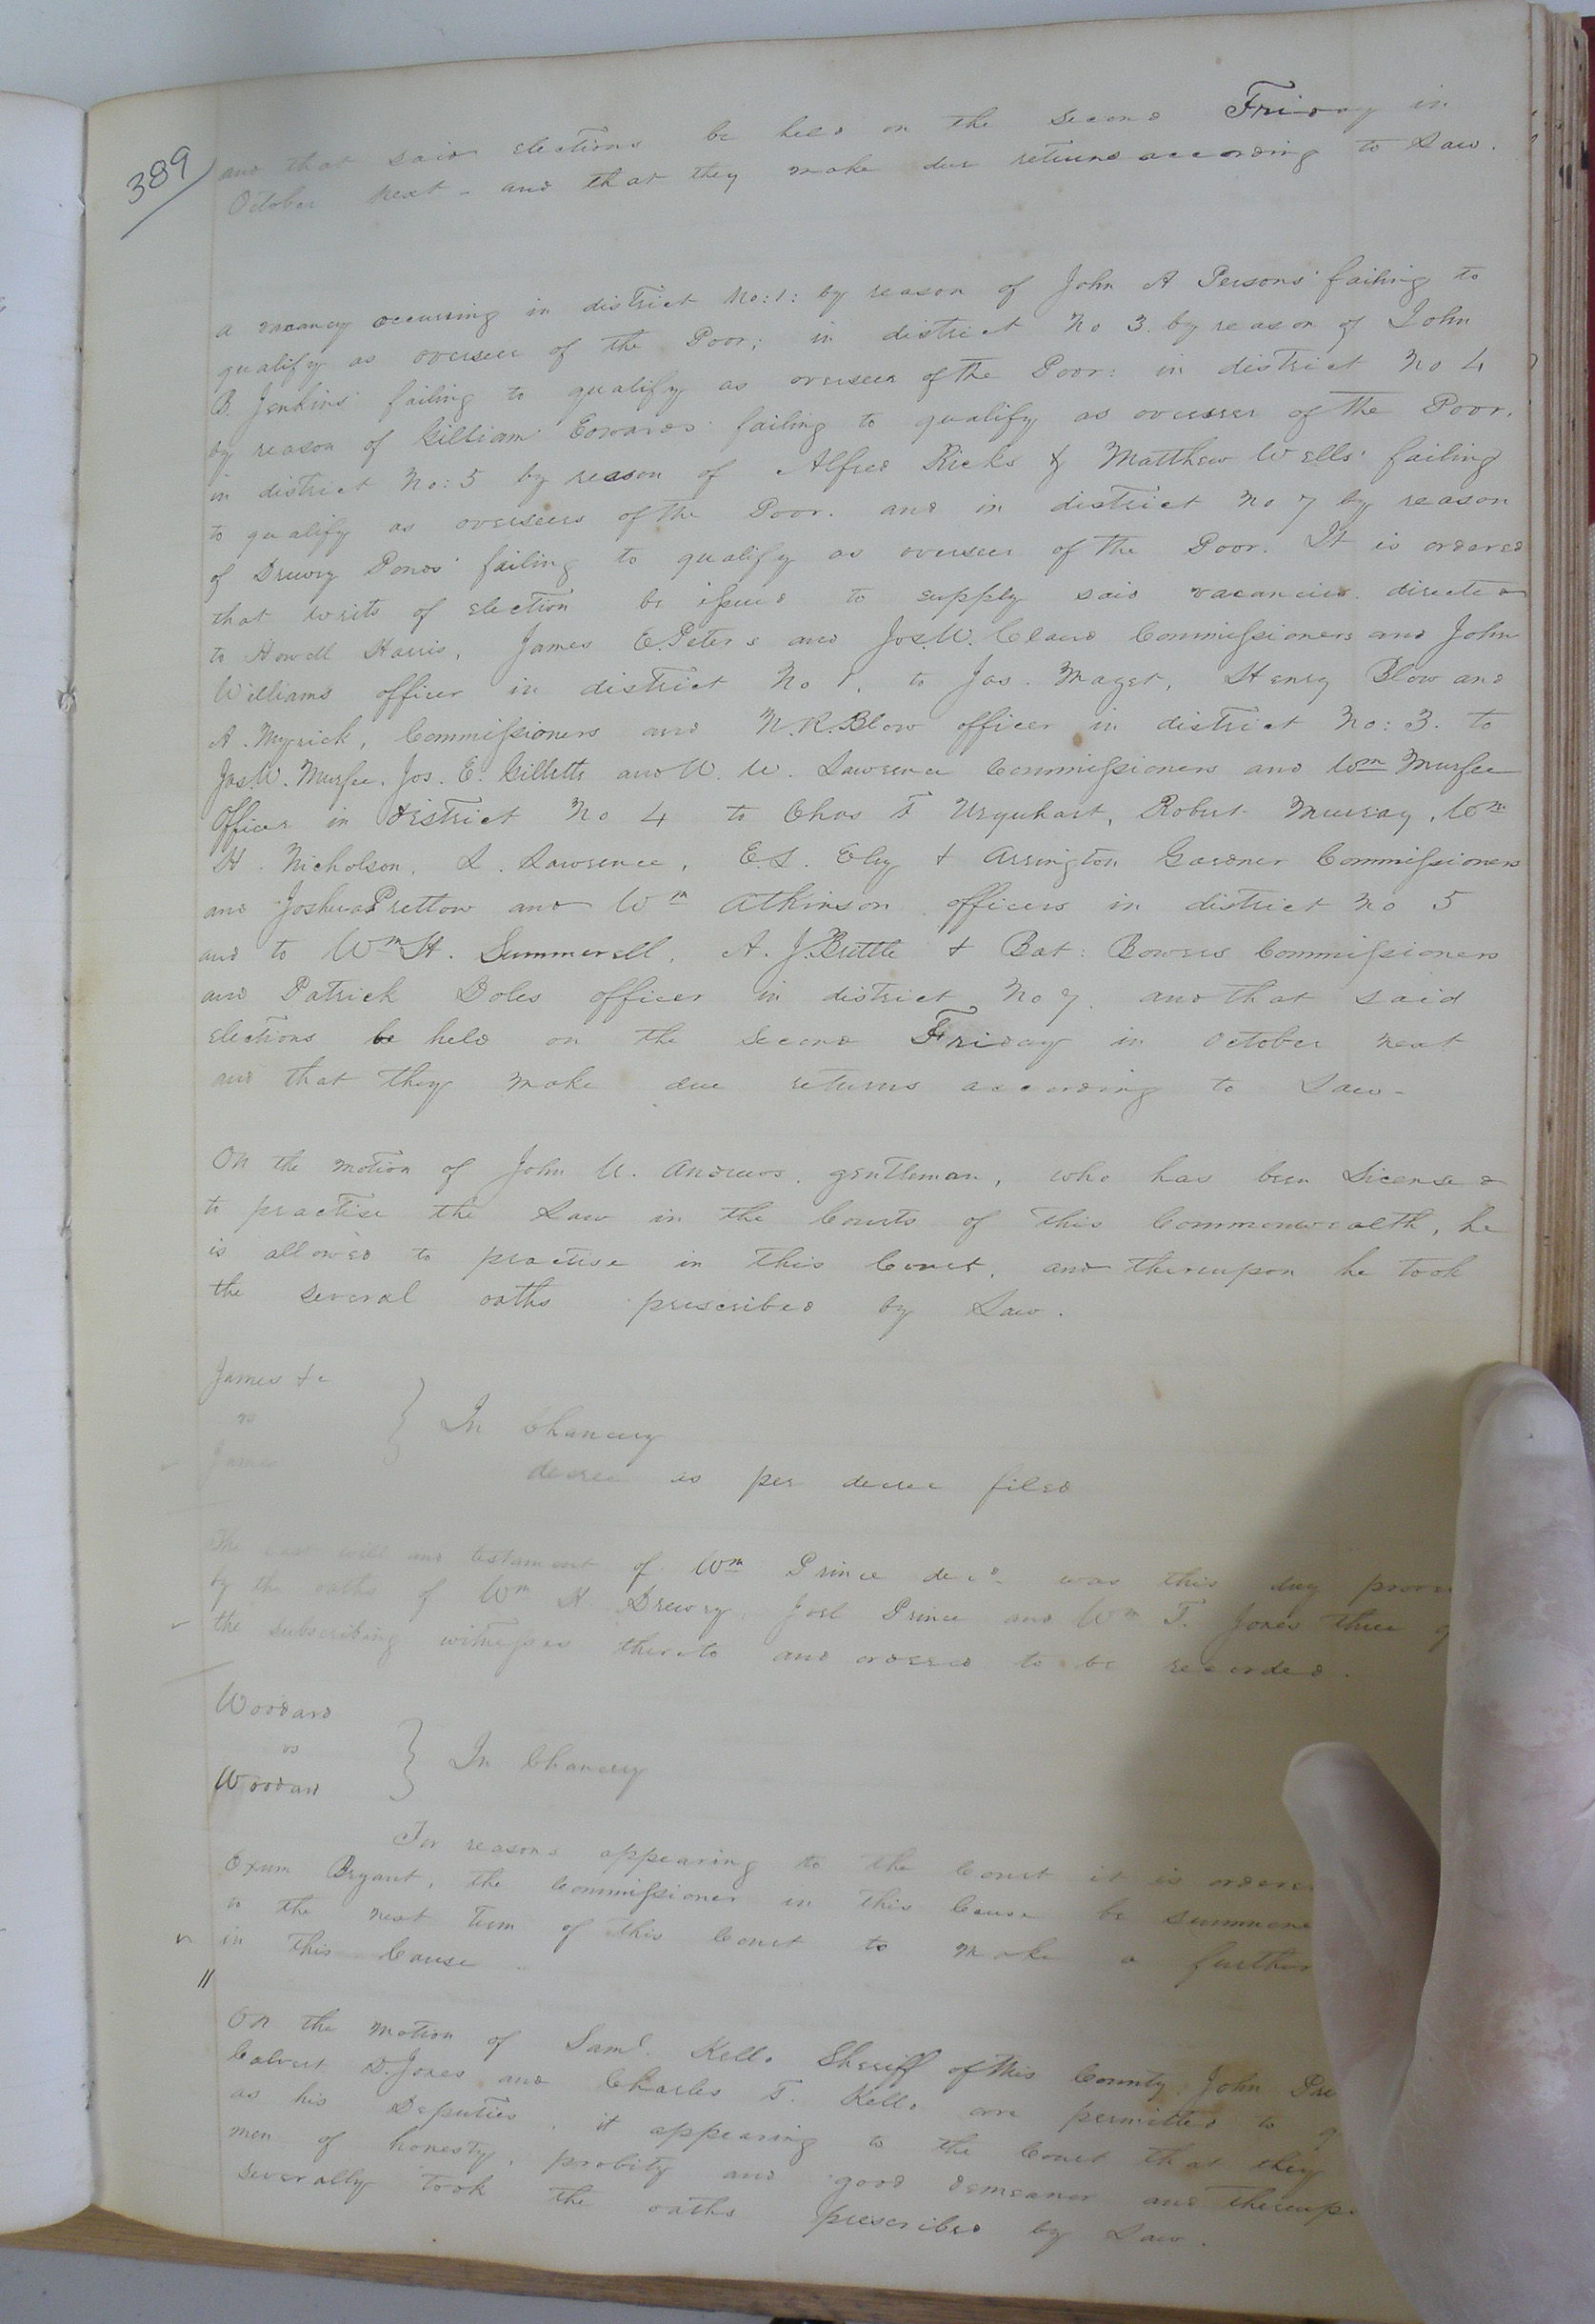 389
and that said elections be held on the second Friday in
October next - and that they make due returns according to Law.
a vacancy occurring in district No: 1: by reason of John A Persons' failing to
qualify as overseer of the Poor; in district No 3. by reason of John
B. Jenkins' failing to qualify as overseer of the Poor: in district No 4
by reason of Gilliam Edwards' failing to qualify as overseer of the Poor.
in district No: 5 by reason of Alfred Ricks & Matthew Wells' failing
to qualify as overseers of the Poor. and in district No 7 by reason
of Drewry Ponds' failing to qualify as overseer of the Poor. It is ordered
that writs of election be issued to supply said vacancies directed
to Howell Harris, James E. Peters and Jos. W. Claud Commissioners and John
Williams officer in district No 1. to Jas. Maget, Henry Blow and
A. Myrick, Commissioners and N. R. Blow officer in district No: 3. to
Jas. W. Murfee, Jos. E. Gillette and W. W. Lawrence Commissioners and Wm Murfee
Officer in district No 4 to Chas F Urquhart, Robert Murray, Wm
H. Nicholson, L. Lawrence, E S. Eley & Arrington Gardner Commissioners
and Joshua Pretlow and Wm Atkinson officers in district No 5
and to Wm H. Summerell, A. J. Brittle & Bat: Bowers Commissioners
and Patrick Doles officer in district No 7. and that said
elections be held on the second Friday in October next
and that they make due returns according to Law -
On the motion of John U. Andrews, gentleman, who has been Licensed
to practise the Law in the Courts of this Commonwealth, he
is allowed to practise in this Court, and thereupon he took
the several oaths prescribed by Law.
James &c
vs
James
In Chancery
decree as per decree filed
The last will and testament of Wm Prince decd. was this day
by the oaths of Wm H Drewry, Joel Prince and Wm T. Jones three
the subscribing witnesses thereto and ordered to be recorded.
Woodard
vs
Woodard
In Chancery
For reasons appearing to the Court it is
Exum Bryant, the Commissioner in this Cause be
to the next term of this Court to make a further
in this Cause
On the motion of Saml. Kello Sheriff of this County, John
Calvert D. Jones and Charles F. Kello are permitted to
as his Deputies, it appearing to the Court that they
men of honesty, probity and good demeanor and
severally took the oaths prescribed by Law.